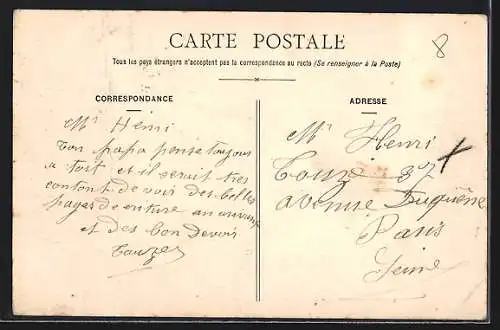 CARTE POSTALE
8
Tous les pays étrangers n'acceptent pas la correspondance au recto (Se renseigner à la Poste)
CORRESPONDANCE
Mr Henri
Ton papa pense toujours
a toit et il serait tres
contant de voir des belles
pages decriture an arrivant
et des bon devoir
Touzé
ADRESSE
Mr Henri
Touzé 37
avenue Duquêne
Paris
Seine